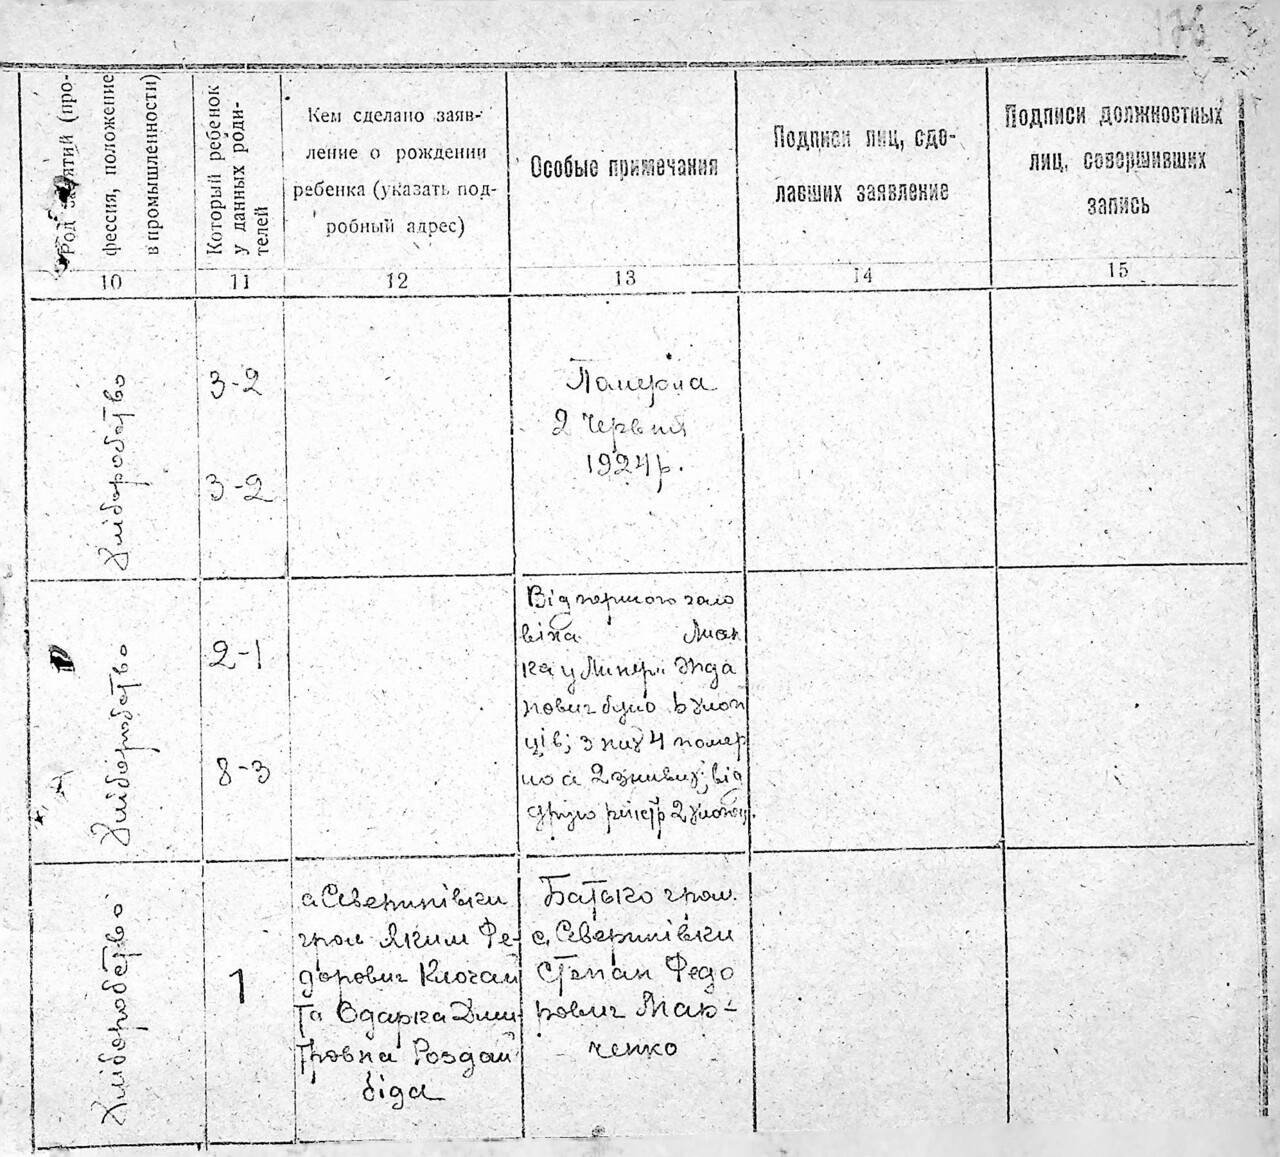 176
Род занятий (про-
фессия, положение
в промышленности)
Который ребенок
у данных роди-
телей
Кем сделано заяв-
ление о рождении
ребенка (указать под-
робный адрес)
Особые примечания
Подписи лиц, сде-
лавших заявление
Подписи должностных
лиц, совершивших
запись
10
11
12
13
14
15
Хліборобство
3-2
3-2
Померла
2 Червня
1924 р.
Хліборобство
2-1
8-3
Від першого чоло
віка
нович було 6 хлоп
ців; з них 4 помер
ло а 2 живих; від
2 хлопц.
Хліборобство
1
с Северинівки
гром Яким Фе-
дорович Клочай
та Одарка Дми
тровна Роздай
біда
Батько гром.
с. Северинівки
Степан Федо
рович Мар-
ченко